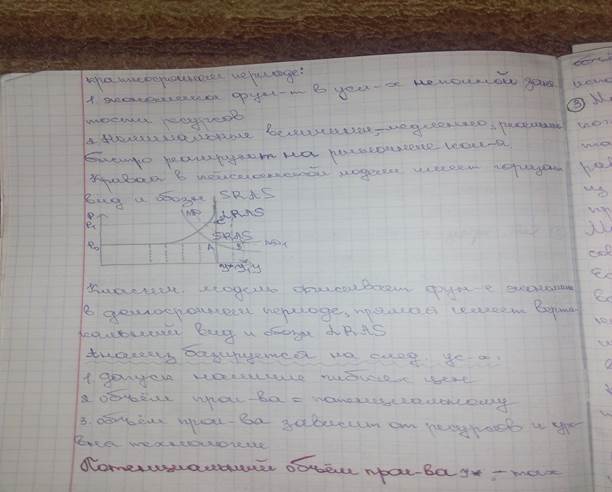 краткосрочном периоде:
1. экономика фун-т в усл-х неполной заня-
тости ресурсов
2. Номинальные величины – медленно, реальные
быстро реагируют на рыночные кол-я
Кривая в кейнсианской модели имеет горизон
вид и обозн SRAS
P AD LRAS
P₁ C
SRAS
P₀ A B AD₁
y* y₁ y
Классич. модель описывает фун-е экономики
в долгосрочном периоде, прямая имеет верти-
кальный вид и обозн LRAS
Анализ базируется на след. ус-х:
1. допуск наличие гибких цен
2. объём прои-ва = потенциальному
3. объём прои-ва зависит от ресурсов и уро-
вня технологии
Потенциальный объём прои-ва y* – max
③